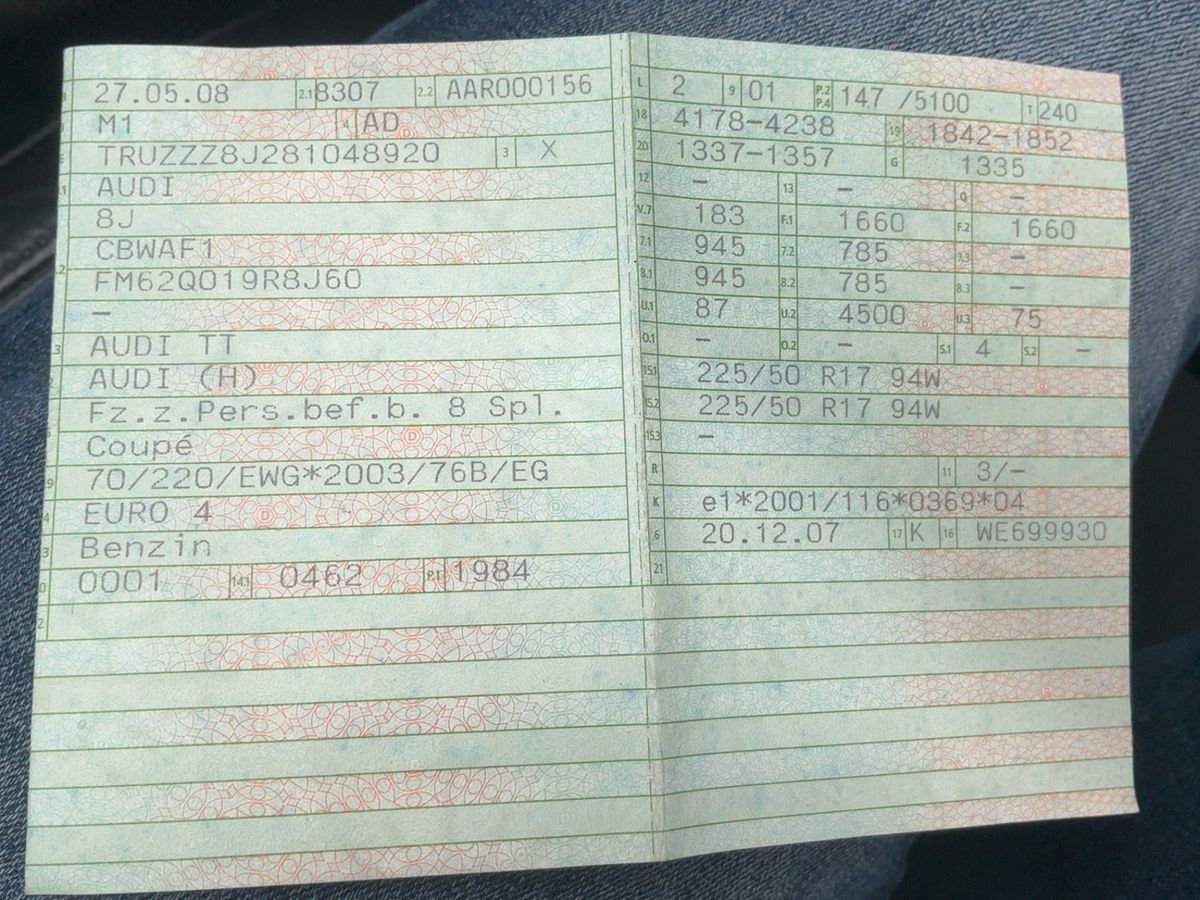 27.05.08 2.1 8307 2.2 AAR000156
M1 4 AD
TRUZZZ8J281048920 3 X
AUDI
8J
CBWAF1
FM62Q019R8J60
–
AUDI TT
AUDI (H)
Fz.z.Pers.bef.b. 8 Spl.
Coupé
70/220/EWG*2003/76B/EG
EURO 4
Benzin
0001 14.1 0462 P.1 1984
L 2 9 01 P.2 P.4 147 /5100 T 240
18 4178-4238 19 1842-1852
20 1337-1357 G 1335
12 – 13 – Q –
V.7 183 F.1 1660 F.2 1660
7.1 945 7.2 785 7.3 –
8.1 945 8.2 785 8.3 –
U.1 87 U.2 4500 U.3 75
O.1 – O.2 – S.1 4 S.2 –
15.1 225/50 R17 94W
15.2 225/50 R17 94W
15.3 –
R 11 3/–
K e1*2001/116*0369*04
6 20.12.07 17 K 16 WE699930
21